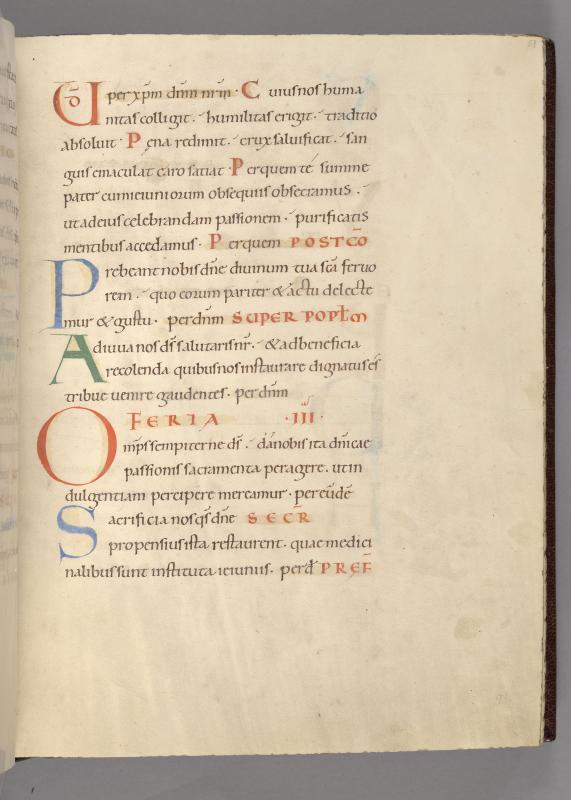 UD per xp̄m dn̄m nr̄m · Cuius nos huma
nitas colligit · humilitas erigit · traditio
absoluit · Pęna redimit · crux saluificat · san
guis emaculat caro satiat · Per quem te summe
pater cum ieiuniorum obsequiis obsecramus ·
ut ad eius celebrandam passionem · purificatis
mentibus accedamus · Per quem POSTCŌ
Prebeant nobis dn̄e diuinum tua sc̄a feruo
rem · quo eorum pariter & actu delecte
mur & gustu · per dn̄m SUPER POPŁM
Adiuua nos ds̄ salutaris nr̄ · & ad beneficia
recolenda quibus nos instaurare dignatus es
tribue uenire gaudentes · per dn̄m
FERIA · III ·
Omp̄s sempiterne ds̄ · da nobis ita dn̄icae
passionis sacramenta peragere · ut in
dulgentiam percipere mereamur · per eūdē
Sacrificia nos qs̄ dn̄e SECR̄
propensius ista restaurent · quae medici
nalibus sunt instituta ieiuniis · per d PREF̄